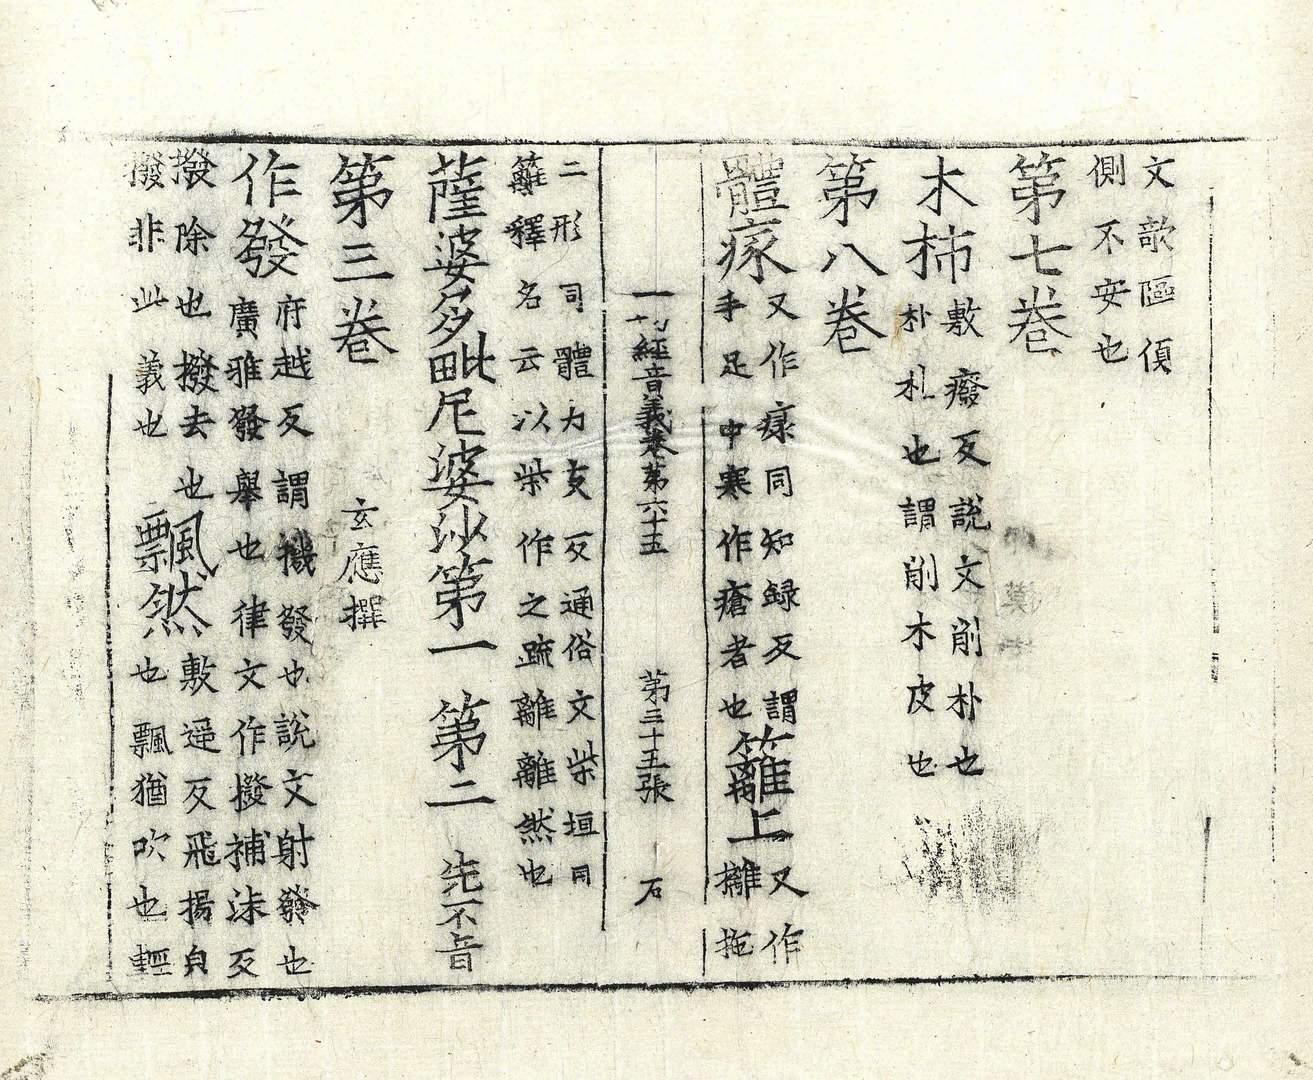 文歕𨄅傾
側不安也
第七卷
木柿敷癈反說文削朴也
朴札也謂削木皮也
第八卷
體瘃又作㾕同知録反謂
手足中寒作瘡者也
籬上又作
㰚杝
一切經音義卷第六十五 第三十五張 石
二形司體力支反通俗文柴垣曰
籬釋名云以柴作之疏離離然也
薩婆多毗尼婆沙第一 第二 先不音
第三卷 玄應撰
作發府越反謂機發也說文射發也
廣雅發舉也律文作撥補沫反
撥除也撥去也
撥非此義也
飄然敷遥反飛揚皃
也飄猶吹也輕